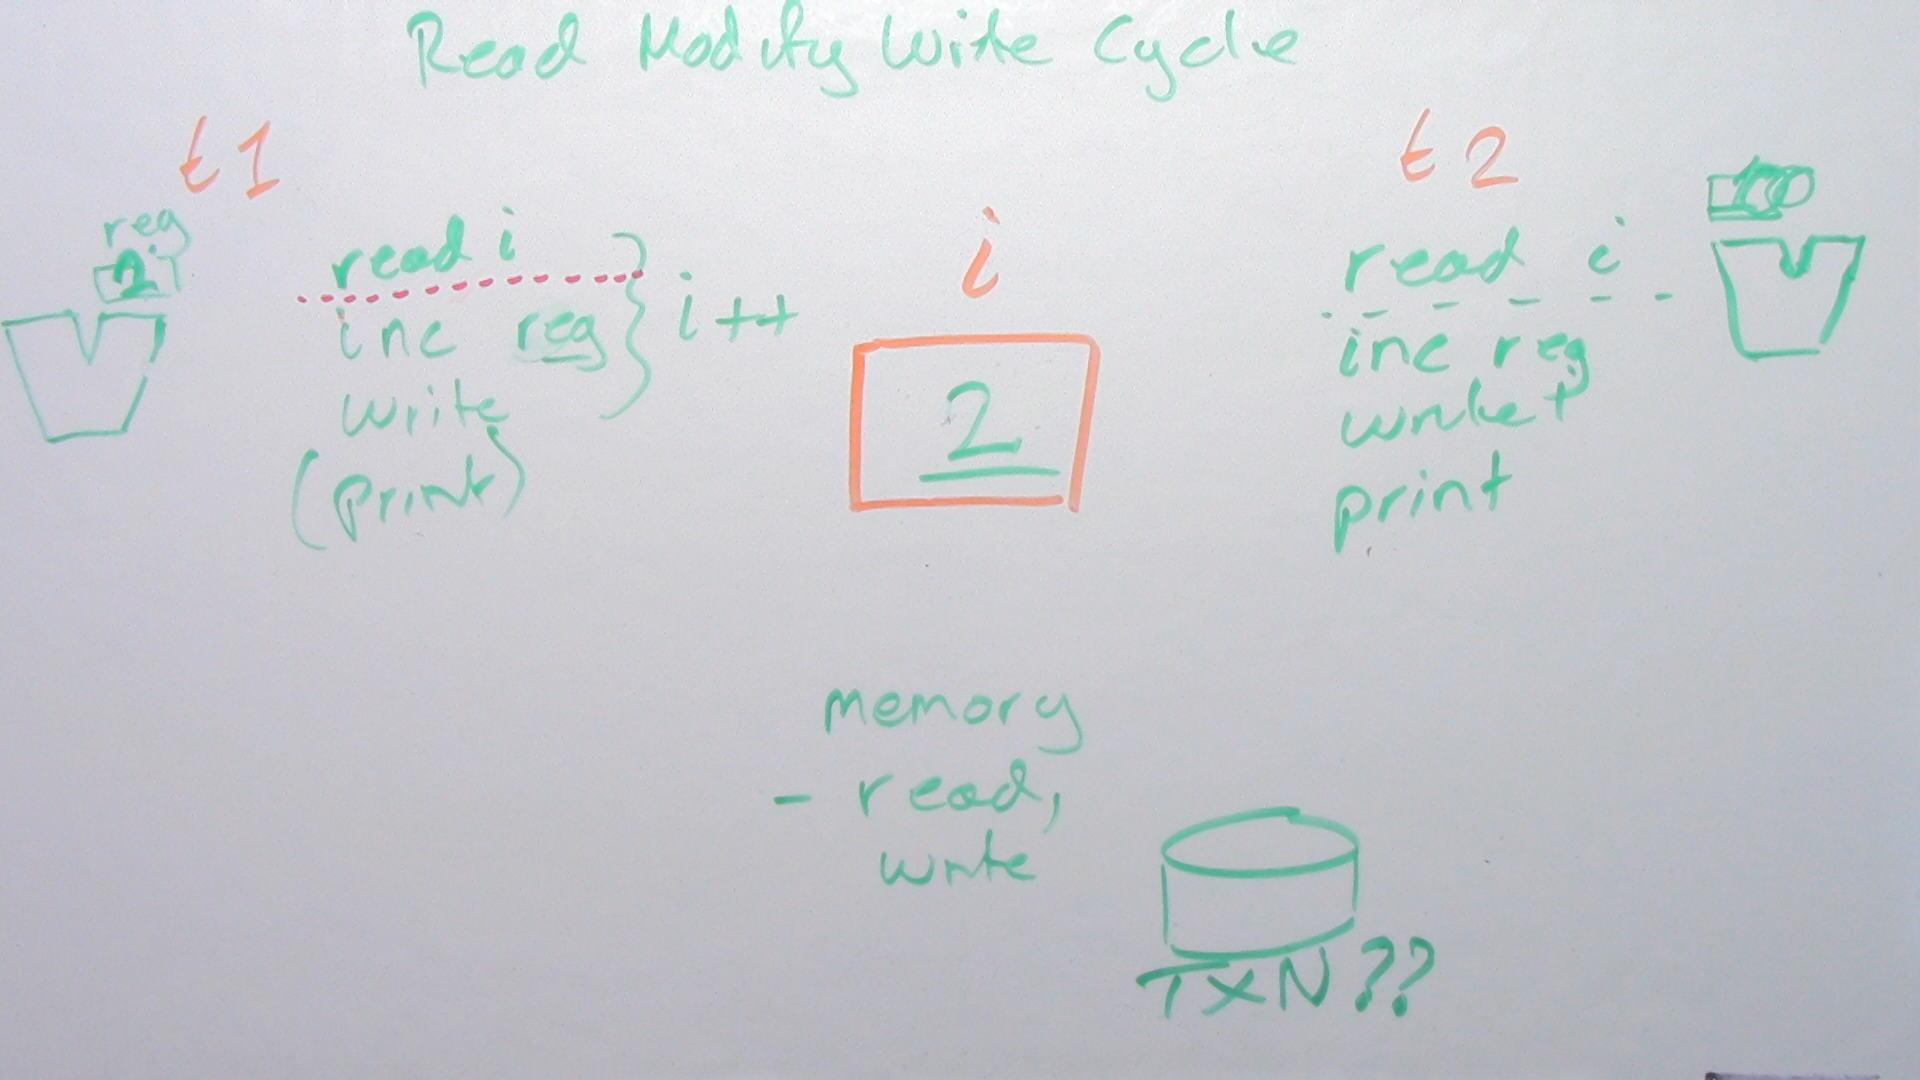 Read Modify Write Cycle
t1
reg
2
read i
inc reg
write
(print)
i++
i
2
t2
read i
inc reg
print
memory
- read,
write
TXN??